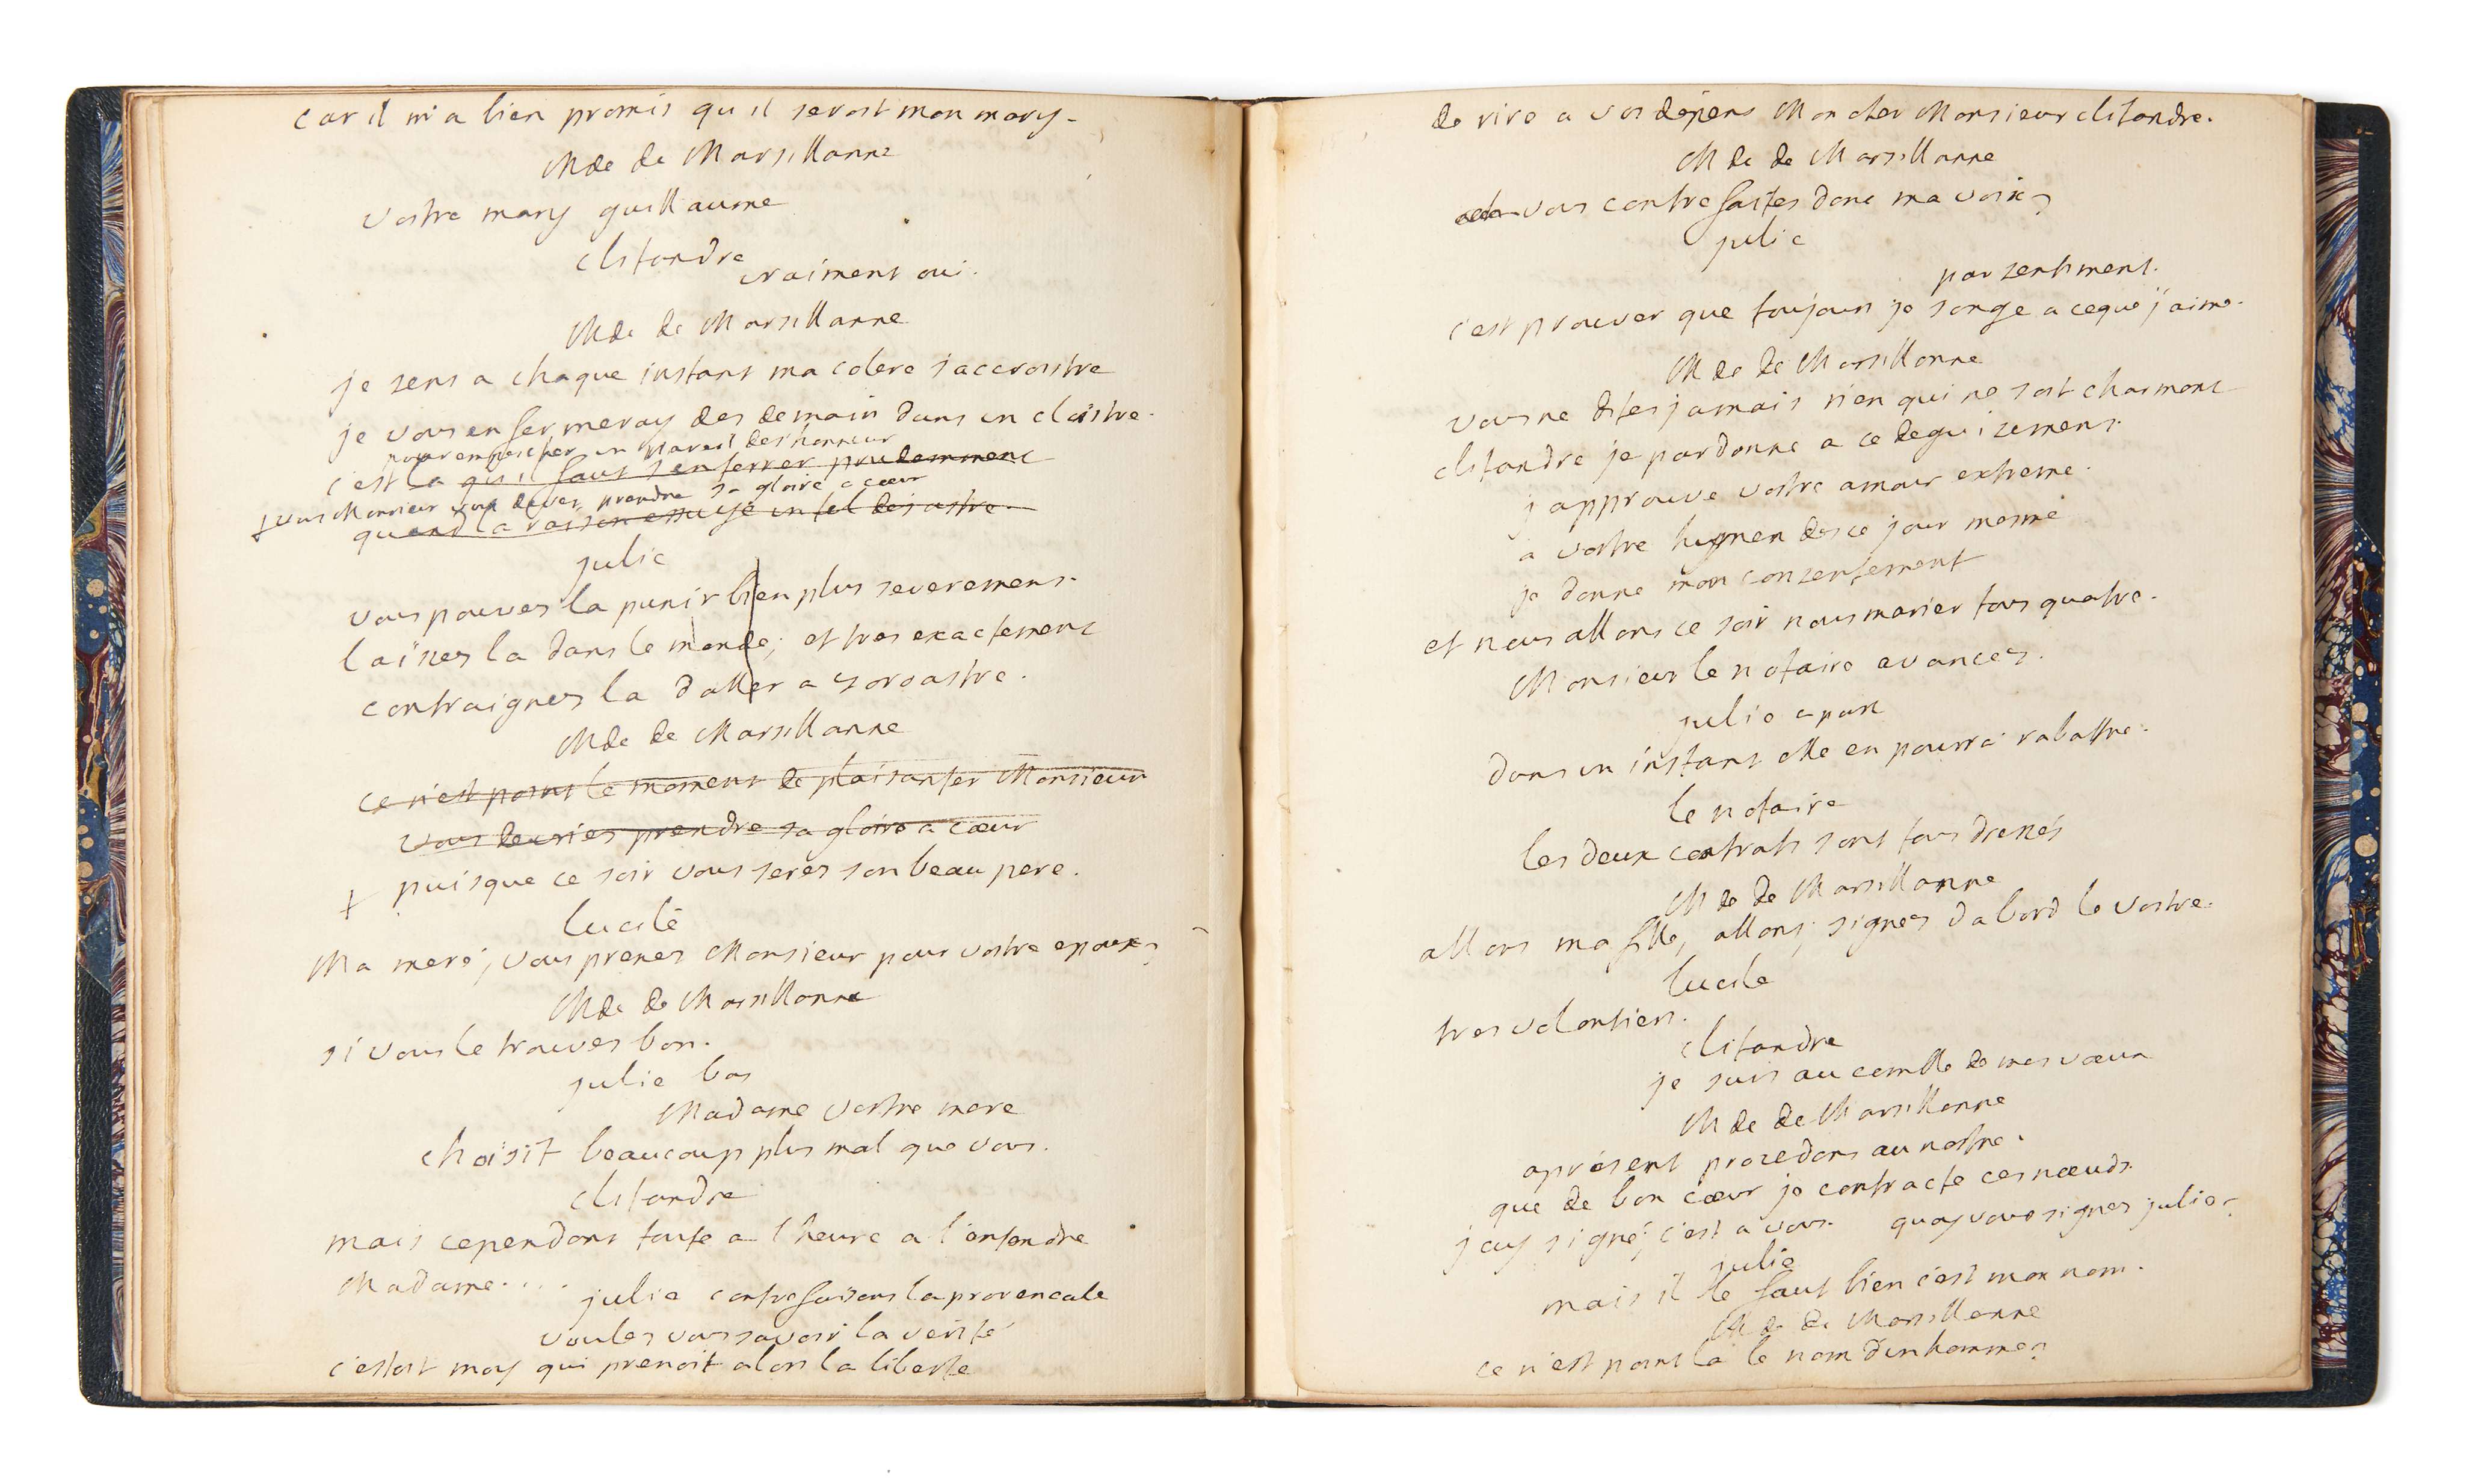 car il m'a bien promis qu'il seroit mon mary.
Mde de Marsillanne
vostre mary guillaume
clitandre
vraiment oui.
Mde de Marsillanne
je sens a chaque instant ma colere s'accroistre
je vous enfermeray des demain dans un cloistre.
pour empescher un pareil des'honneur
c'est la qu'il faut s'enterrer prudemment
+ vous Monsieur vous deves prendre sa gloire a cœur
quand la raison essuye un tel desastre.
julie
vous pouves la punir bien plus severement.
laïsses la dans le monde; et tres exactement
contraignes la d'aller a zoroastre.
Mde de Marsillanne
ce n'est point le moment de plaisanter Monsieur
vous devries prendre sa gloire a cœur
+ puisque ce soir vous seres son beau pere.
lucile
Ma mere, vous prenes Monsieur pour vostre epoux?
Mde de Marsillanne
si vous le trouves bon.
julie bas
Madame vostre mere
choïsit beaucoup plus mal que vous.
clitandre
mais cependant toute a l'heure a l'entendre
Madame....
julie contrefaisant la provencale
voules vous savoir la verité
c'estoit moy qui prenoit alors la liberte
de rire a vos dépens Mon cher Monsieur clitandre.
Mde de Marsillanne
vous contrefaites donc ma voix?
julie
par sentiment.
c'est prouver que toujours je songe a ce que j'aime.
Mde de Marsillanne
vous ne dites jamais rien qui ne soit charmant
clitandre je pardonne a ce deguisement.
j'approuve vostre amour extreme.
a vostre hymen des ce jour mesme
je donne mon consentement
et nous allons ce soir nous marier tous quatre.
Monsieur le notaire avances.
julie a part
dans un instant elle en pourra rabattre.
le notaire
les deux contrats sont tous dressés
Mde de Marsillanne
allons ma fille, allons; signes d'abord le vostre.
lucile
tres volontiers.
clitandre
je suis au comble de mes vœux
Mde de Marsillanne
aprésent procedons au nostre.
que de bon cœur je contracte ces nœuds.
j'ay signé; c'est a vous. quoy vous signes julie?
julie
mais il le faut bien c'est mon nom.
Mde de Marsillanne
ce n'est point la le nom d'un homme?